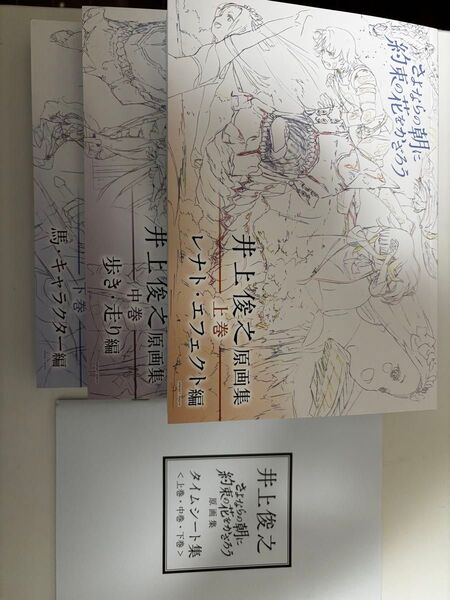 さよならの朝に
約束の花をかざろう
井上俊之原画集
上巻
レナト・エフェクト編
井上俊之原画集
中巻
歩き・走り編
下巻
馬・キャラクター編
井上俊之
さよならの朝に
約束の花をかざろう
原画集
タイムシート集
<上巻・中巻・下巻>